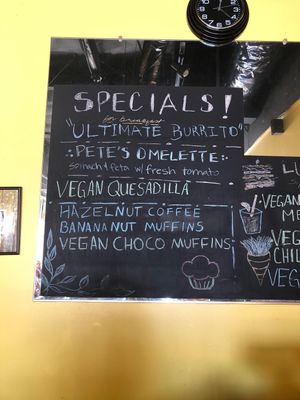 SPECIALS!
for breakfast
"ULTIMATE BURRITO"
PETE'S OMELETTE
spinach + feta w/ fresh tomato
VEGAN QUESADILLA
HAZELNUT COFFEE
BANANA NUT MUFFINS
VEGAN CHOCO MUFFINS
VEGAN
VEG
CHIL
VEG